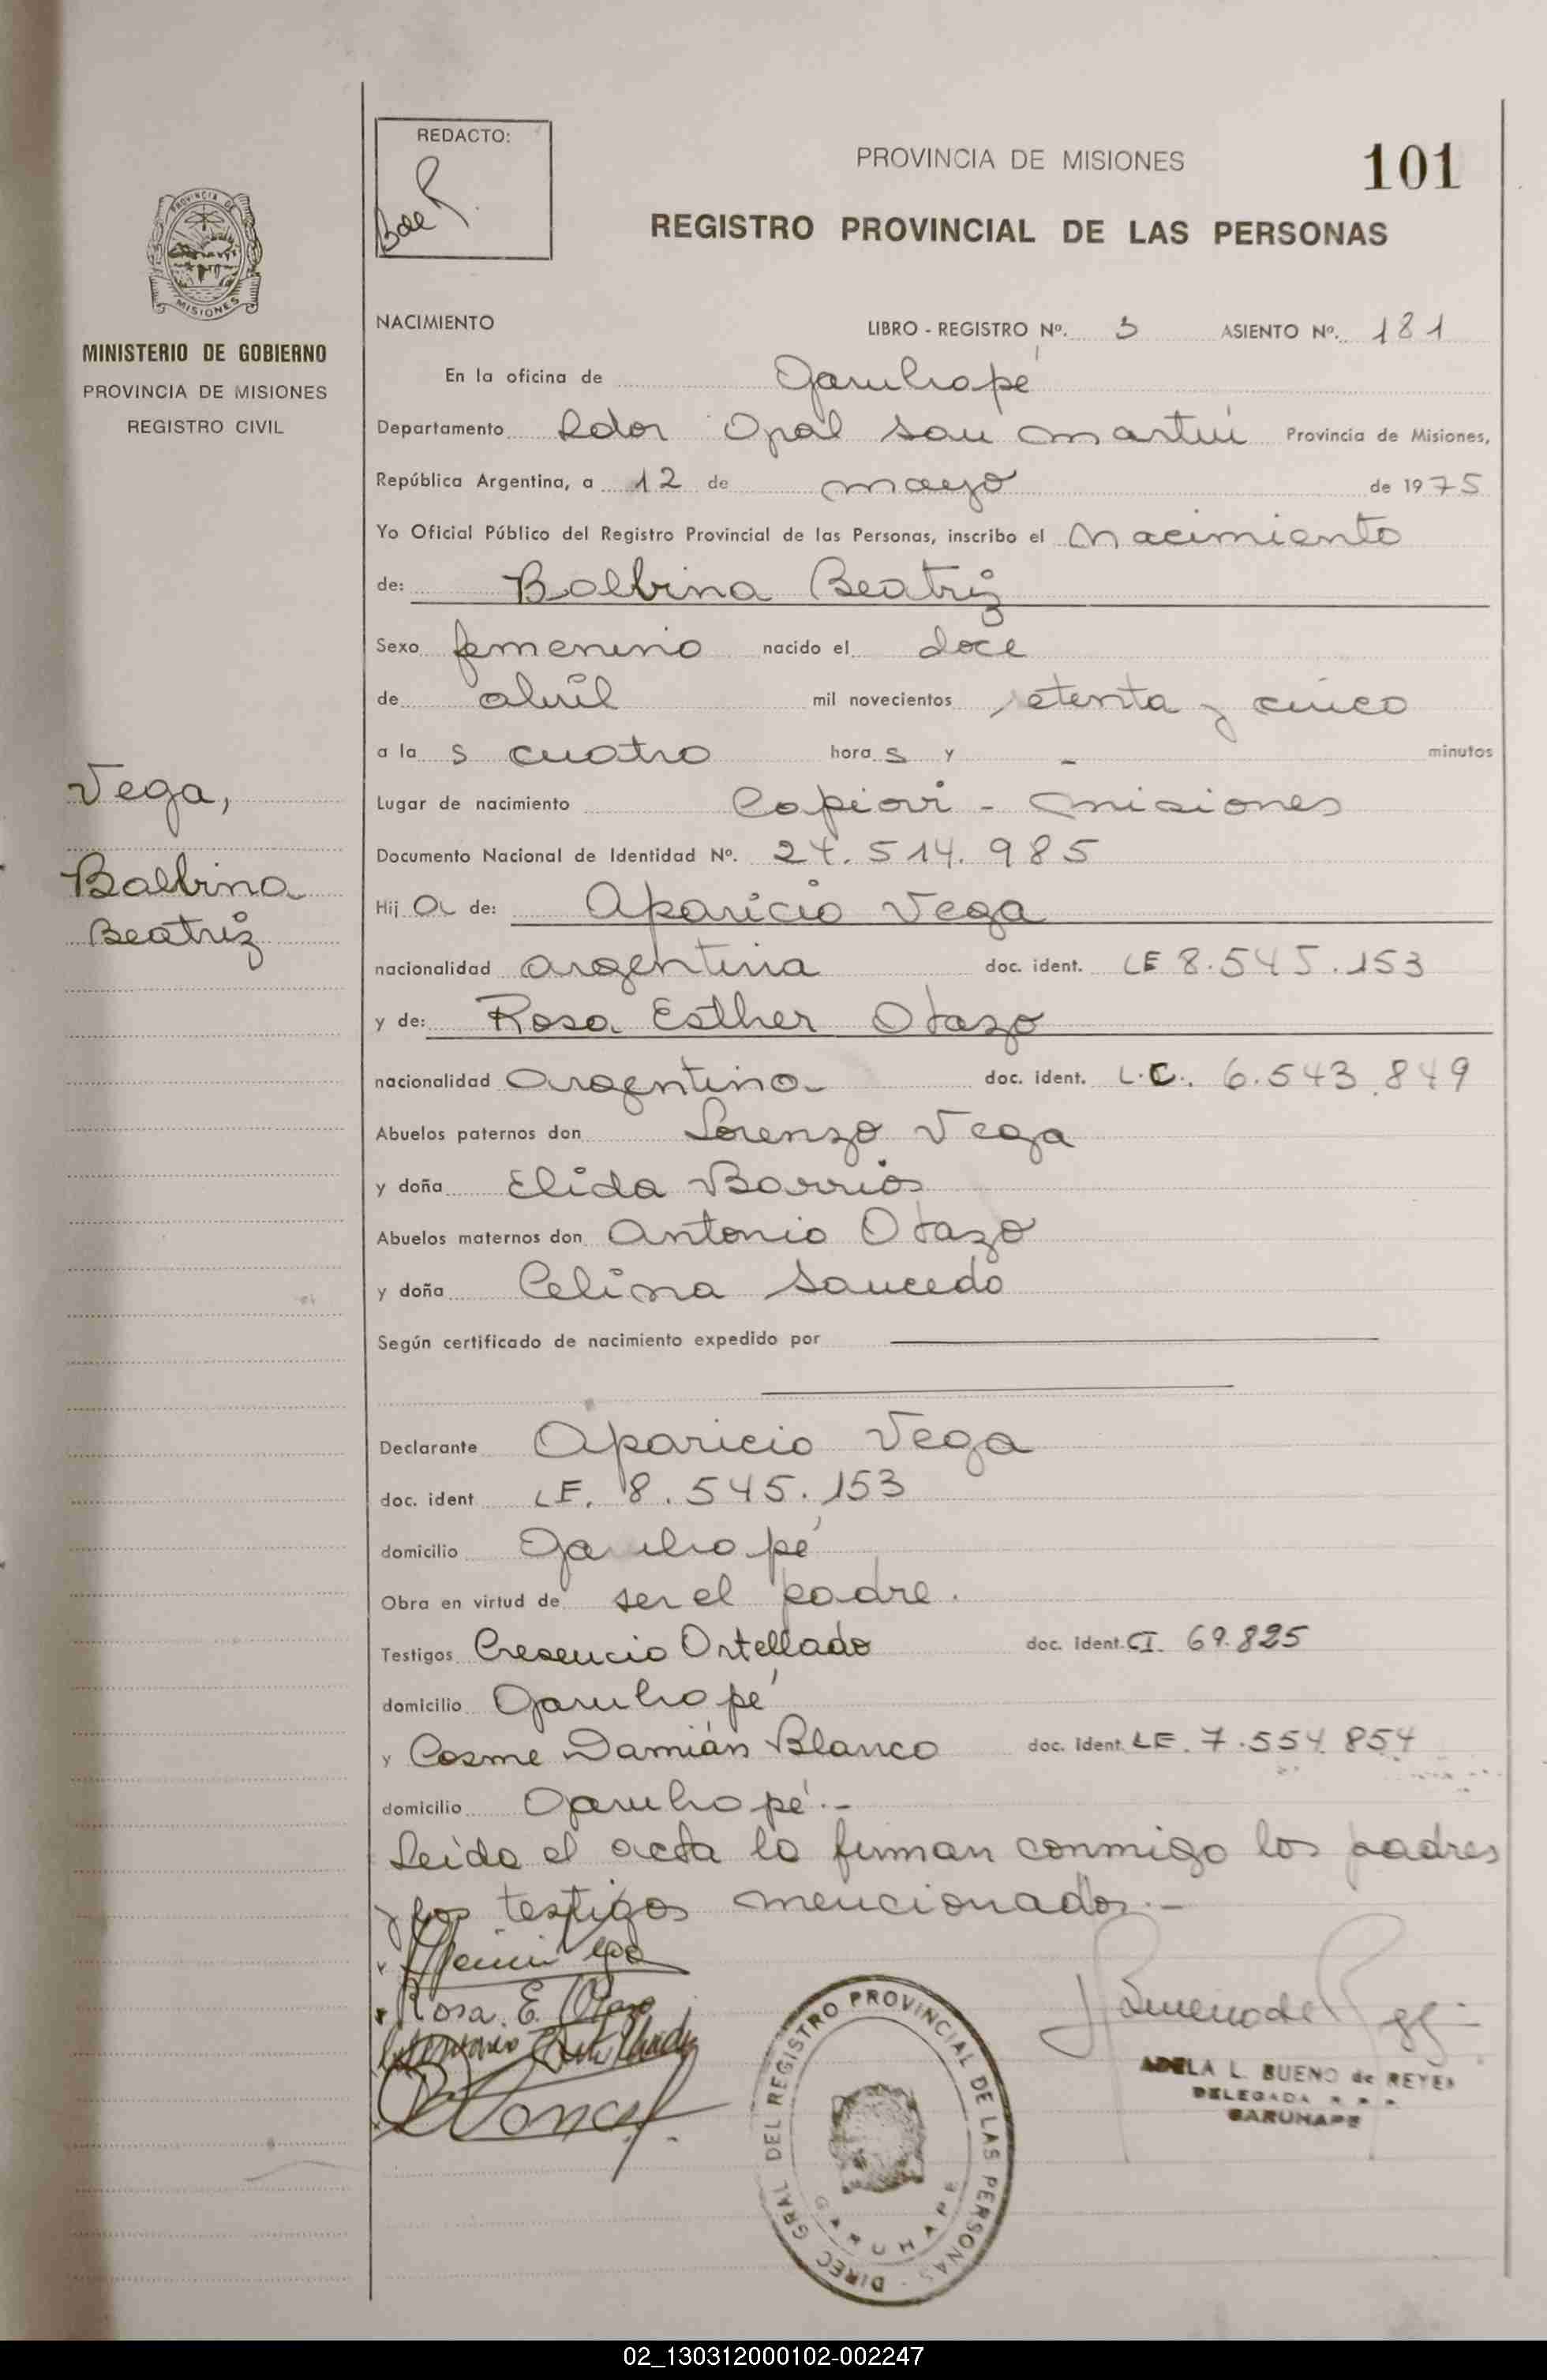 REDACTO:
B de R.
PROVINCIA DE MISIONES
101
REGISTRO PROVINCIAL DE LAS PERSONAS
PROVINCIA DE
MISIONES
MINISTERIO DE GOBIERNO
PROVINCIA DE MISIONES
REGISTRO CIVIL
NACIMIENTO LIBRO - REGISTRO Nº. 3 ASIENTO Nº. 181
En la oficina de Garuhapé
Departamento Ldor Gral San Martín Provincia de Misiones,
República Argentina, a 12 de mayo de 1975
Yo Oficial Público del Registro Provincial de las Personas, inscribo el Nacimiento
de: Balbina Beatriz
Sexo femenino nacido el doce
de abril mil novecientos setenta y cinco
a la s cuatro hora s y - minutos
Vega,
Balbina
Beatriz
Lugar de nacimiento Capiovi - Misiones
Documento Nacional de Identidad Nº. 24.514.985
Hij a de: Aparicio Vega
nacionalidad argentina doc. ident. LE 8.545.153
y de: Rosa Esther Otazo
nacionalidad Argentina doc. ident. L.C. 6.543.849
Abuelos paternos don Lorenzo Vega
y doña Elida Barrios
Abuelos maternos don Antonio Otazo
y doña Celina Saucedo
Según certificado de nacimiento expedido por
Declarante Aparicio Vega
doc. ident LE. 8.545.153
domicilio Garuhapé
Obra en virtud de ser el padre.
Testigos Cresencio Ortellado doc. ident. CI. 69.825
domicilio Garuhapé
y Cosme Damián Blanco doc. ident. LE. 7.554.854
domicilio Garuhapé.-
Leída el acta la firman conmigo los padres
y los testigos mencionados.-
Rosa. E. Otazo
ADELA L. BUENO de REYES
DELEGADA R. P. P.
GARUHAPE
DIREC GRAL DEL REGISTRO PROVINCIAL DE LAS PERSONAS
GARUHAPE
02_130312000102-002247